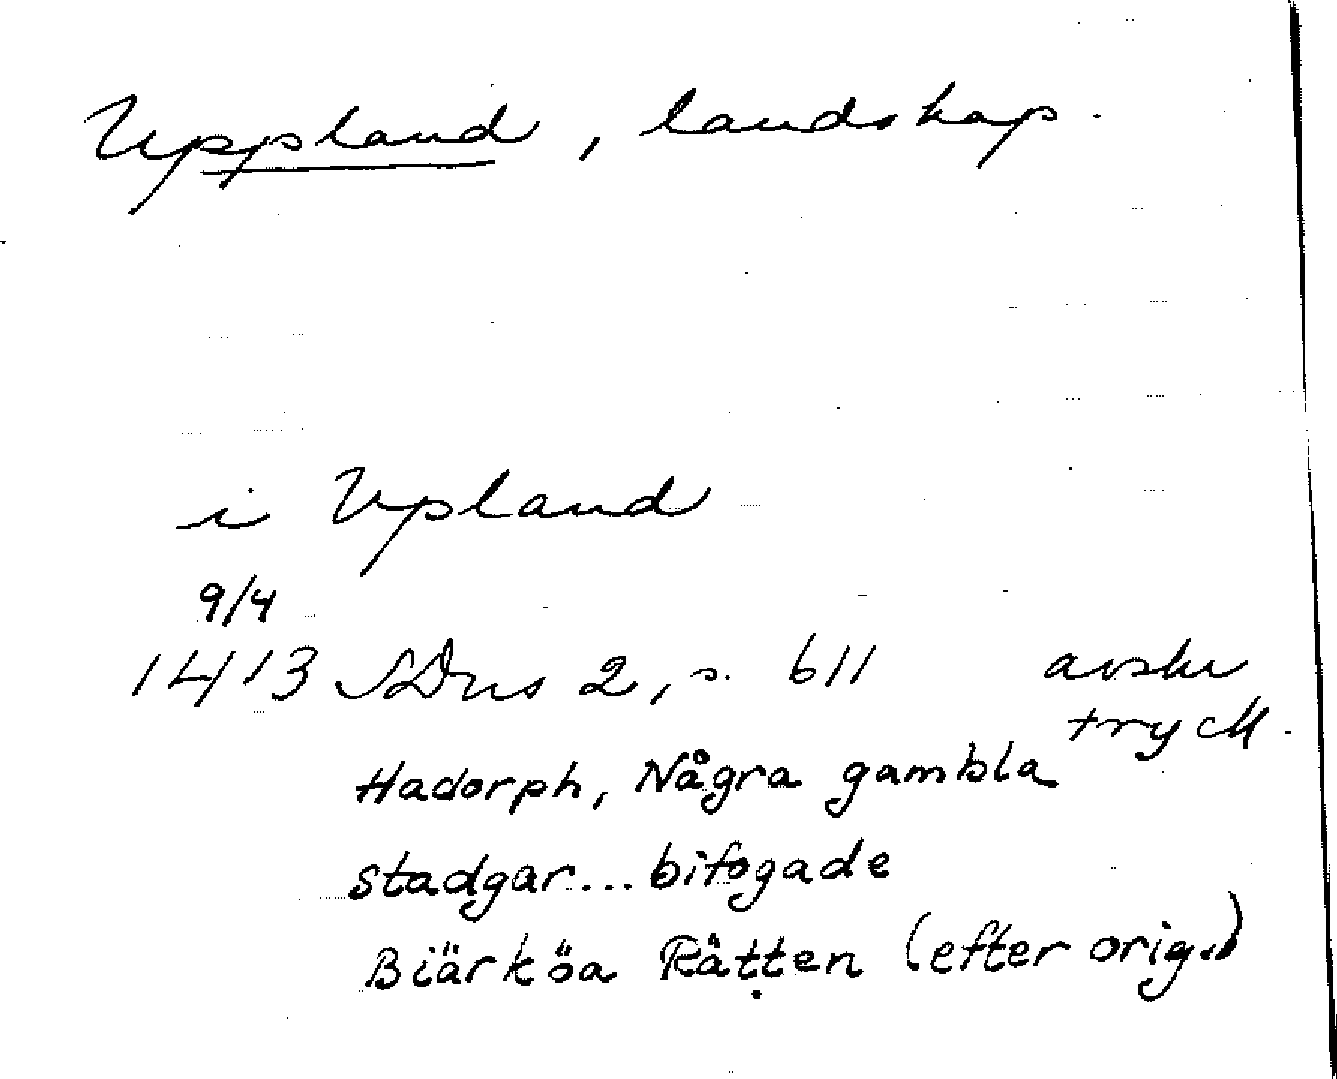 Uppland, landskap.
i Upland
9/4
1413 SDns 2, s. 611 avskr
tryck.
Hadorph, Några gambla
stadgar... bifogade
Biärköa Rätten (efter orig.)